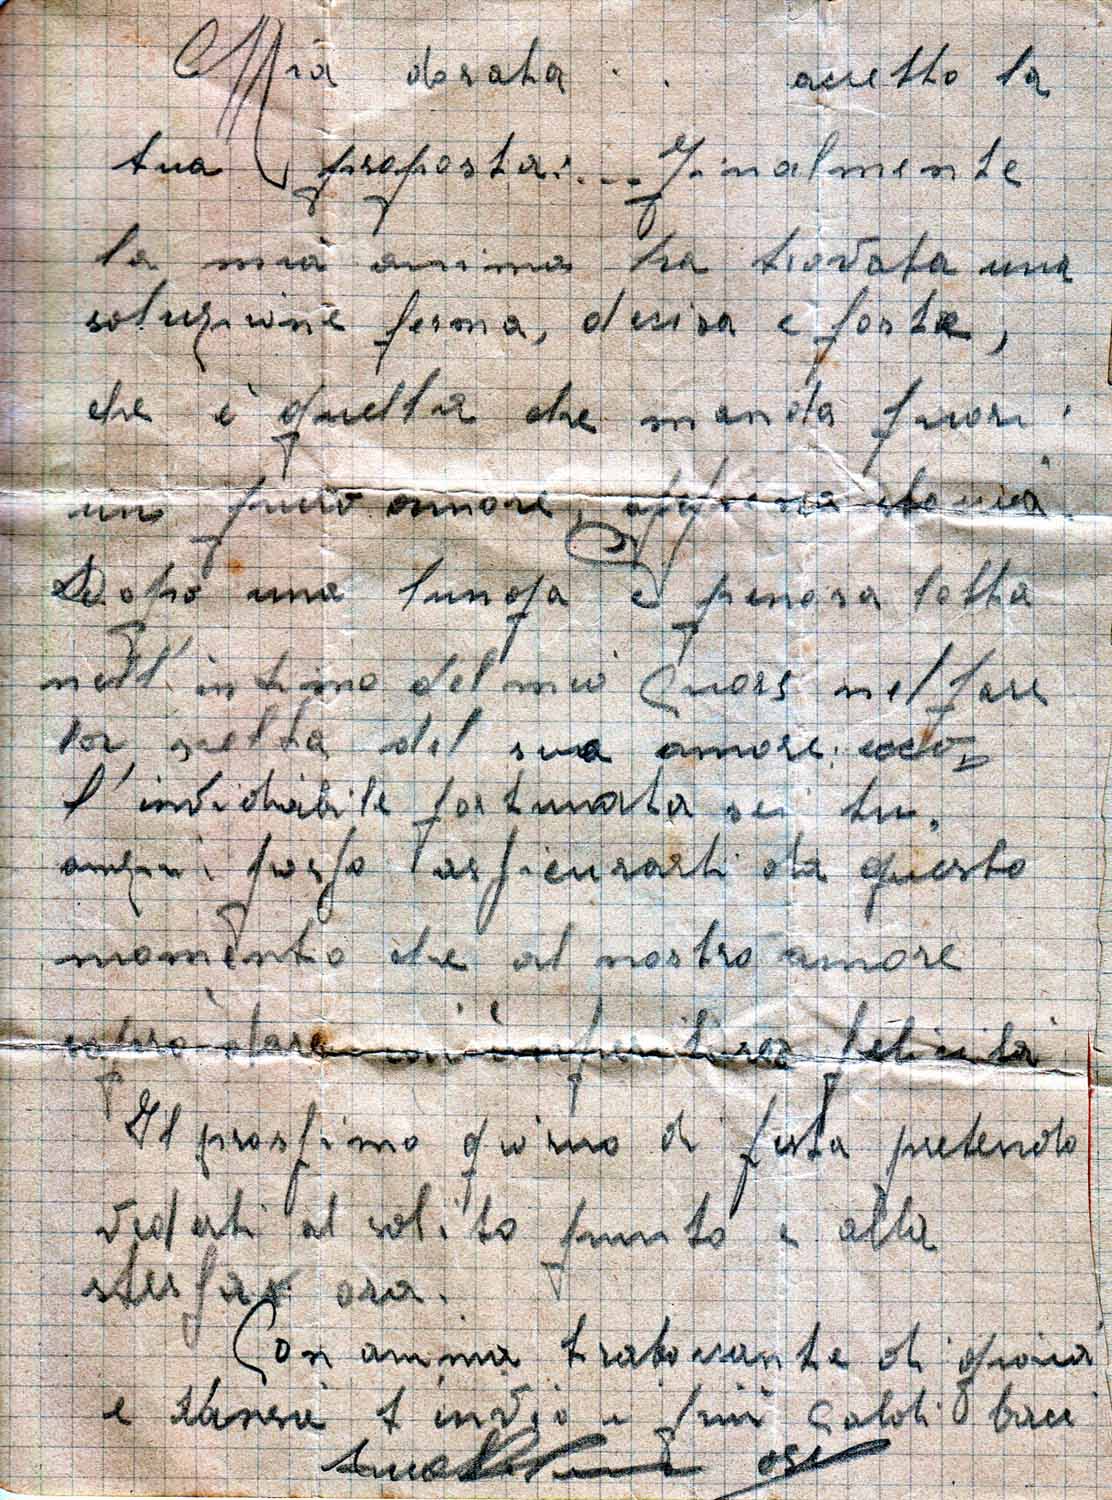 Mia dorata . . accetto la
tua proposta:... Finalmente
la mia anima ha trovata una
soluzione ferma, decisa e forte,
che è quella che manda fuori
un puro amore,
Dopo una lunga e penosa lotta
nell'intimo del mio Cuore nel fare
la scelta del sua amore: ecco
l'invidiabile fortunata sei tu,
anzi: posso assicurarti da questo
momento che al nostro amore
saprò dare felicità
Il prossimo giorno di festa pretendo
vederti al solito punto e alla
stessa ora.
Con anima traboccante di gioia
e t'invio i più Caldi baci